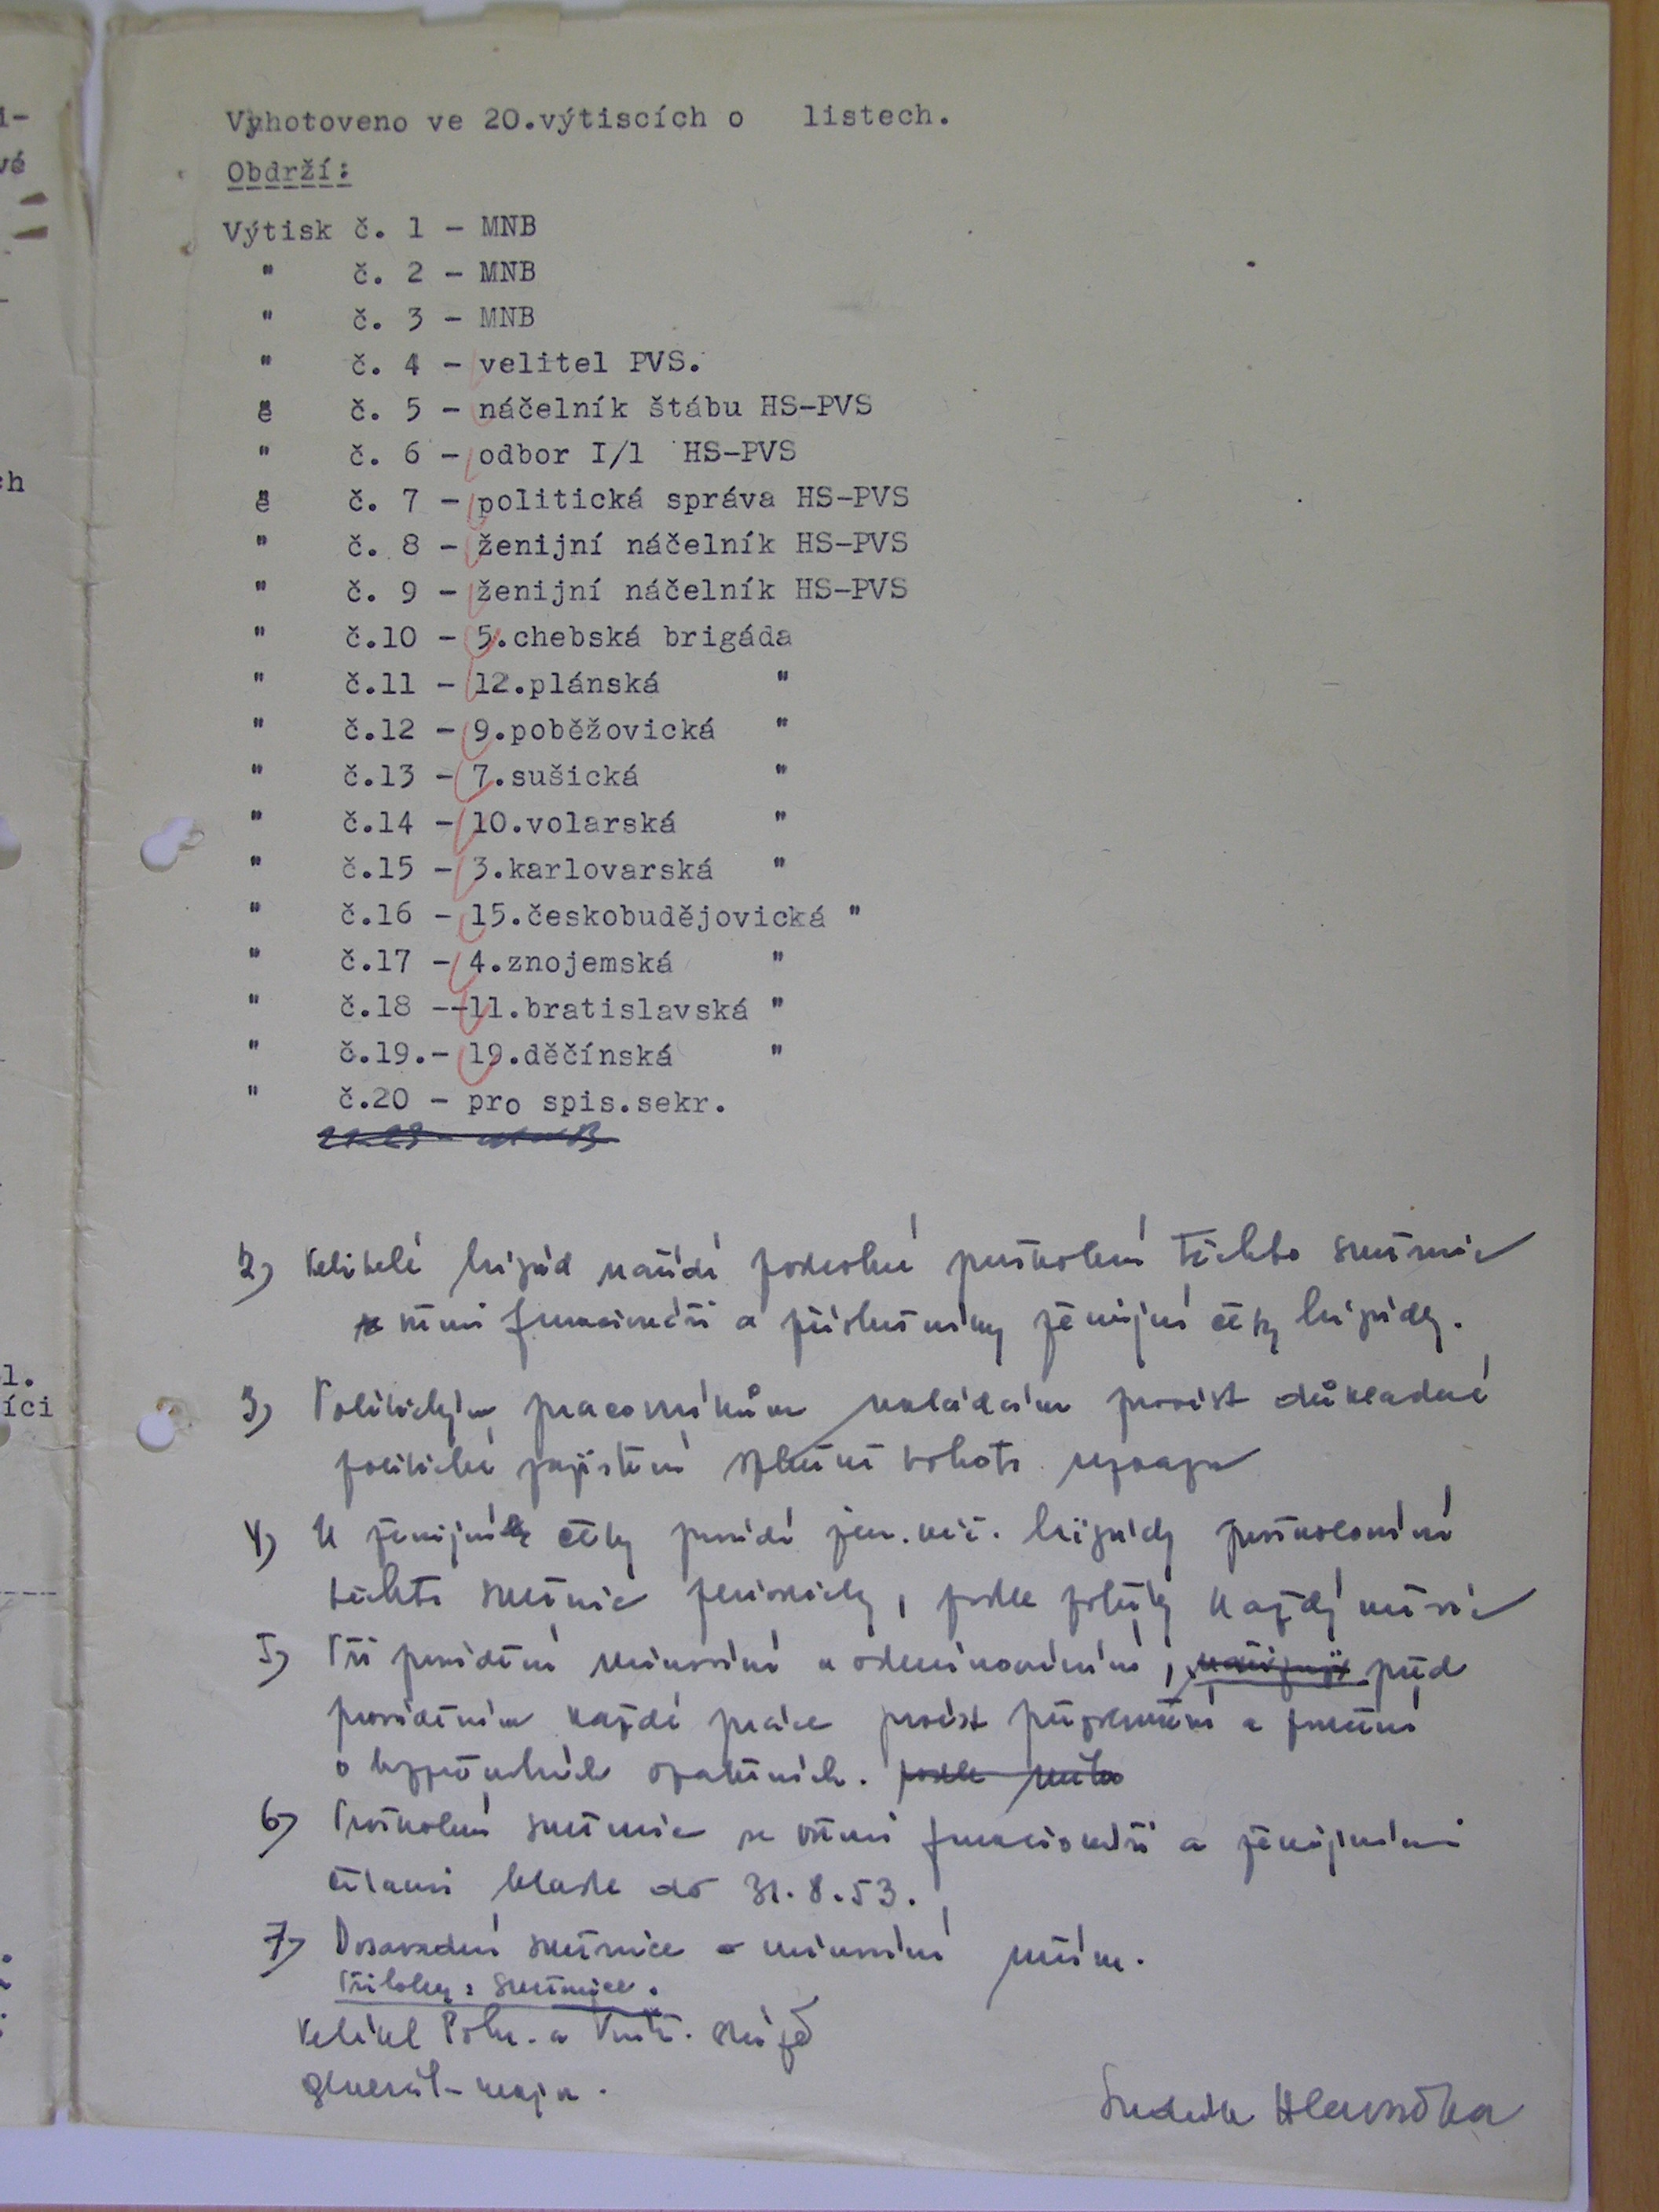 Vyhotoveno ve 20.výtiscích o listech.
Obdrží:
Výtisk č. 1 - MNB
" č. 2 - MNB
" č. 3 - MNB
" č. 4 - velitel PVS.
" č. 5 - náčelník štábu HS-PVS
" č. 6 - odbor I/1 HS-PVS
" č. 7 - politická správa HS-PVS
" č. 8 - ženijní náčelník HS-PVS
" č. 9 - ženijní náčelník HS-PVS
" č.10 - 5.chebská brigáda
" č.11 - 12.plánská "
" č.12 - 9.poběžovická "
" č.13 - 7.sušická "
" č.14 - 10.volarská "
" č.15 - 3.karlovarská "
" č.16 - 15.českobudějovická "
" č.17 - 4.znojemská "
" č.18 --11.bratislavská "
" č.19.- 19.děčínská "
" č.20 - pro spis.sekr.
2) Velitelé brigád nařídí podrobné proškolení těchto směrnic
všemi funkcionáři a příslušníky ženijní čety brigády.
3) Politickým pracovníkům ukládám provést důkladné
politické zajištění splnění tohoto rozkazu
4) U ženijní čety provádí žen. náč. brigády proškolování
těchto směrnic periodicky, podle potřeby každý měsíc
5) Při provádění minování a odminování, před
prováděním každé práce provést přezkoušení a poučení
o bezpečnostních opatřeních.
6) Proškolení směrnic se všemi funkcionáři a ženijními
četami hlaste do 31.8.53.
7) Dosavadní směrnice o minování ruším.
Přílohy: Směrnice.
Velitel Pohr. a Vnitř. stráže
generál-major.
Ludvík Hlavačka